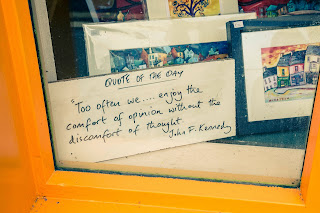 QUOTE OF THE DAY
"Too often we.... enjoy the
comfort of opinion without the
discomfort of thought.
John F. Kennedy